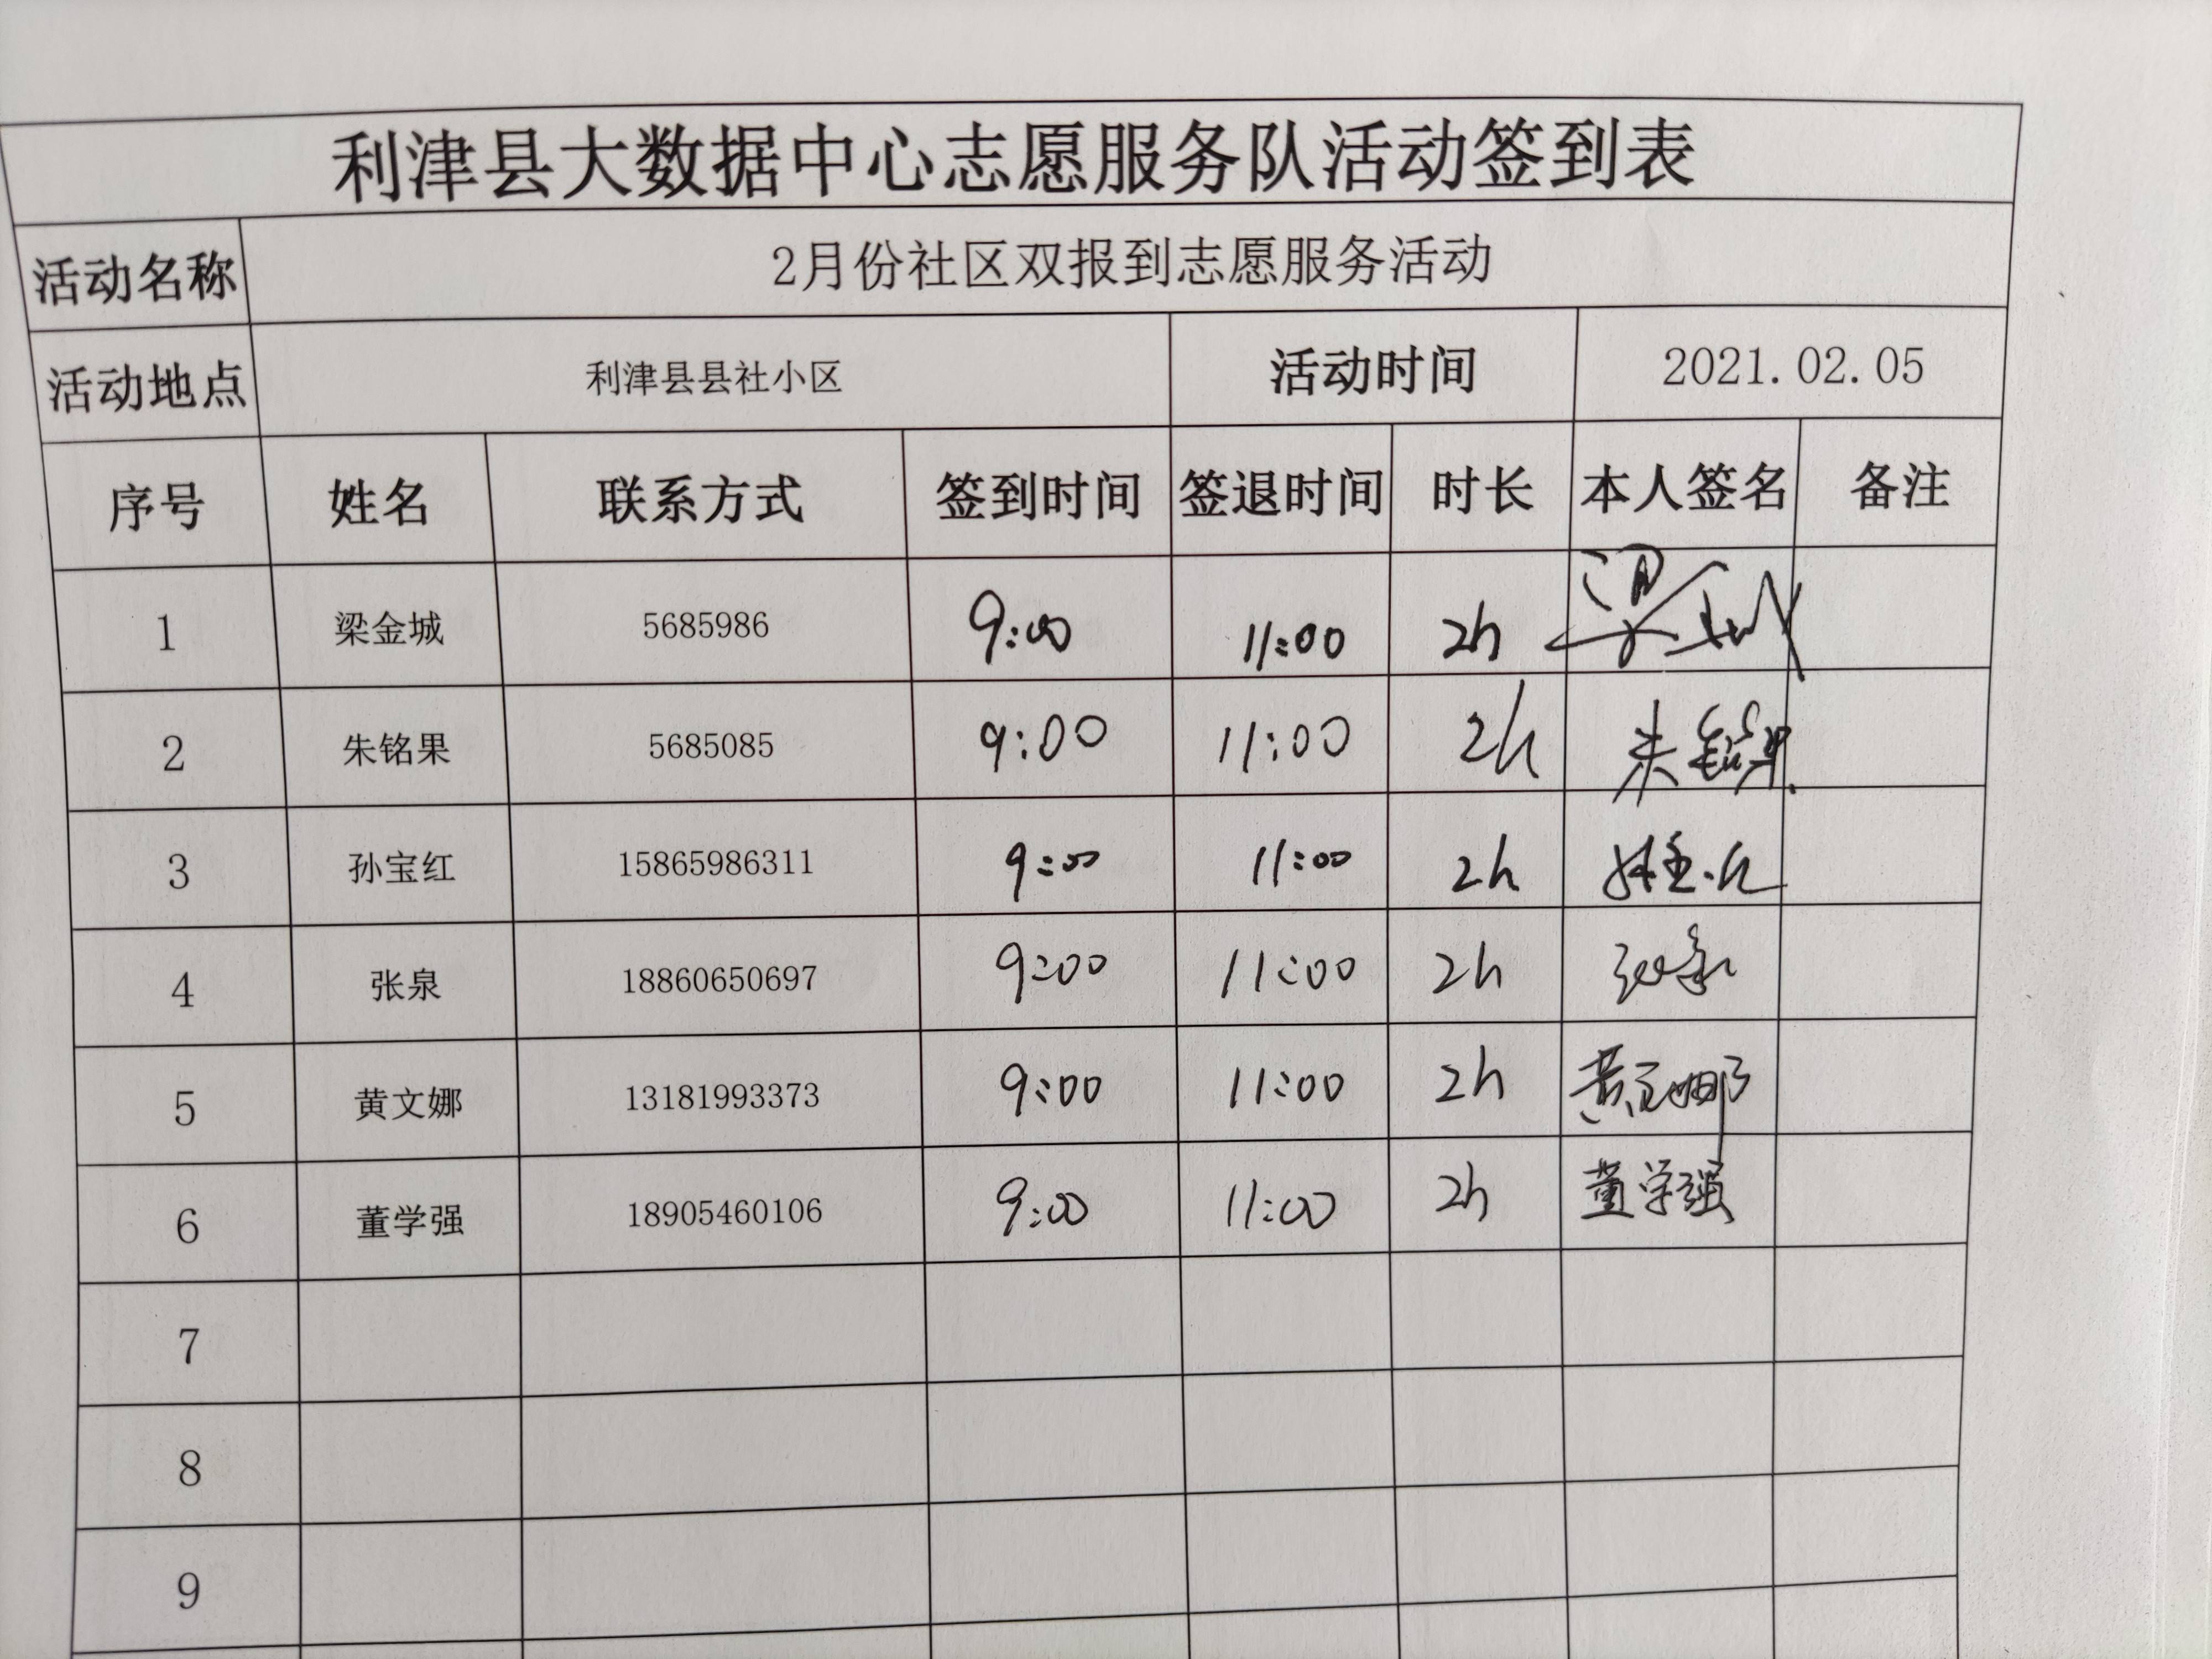 利津县大数据中心志愿服务队活动签到表
活动名称 2月份社区双报到志愿服务活动
活动地点 利津县县社小区 活动时间 2021.02.05
序号 姓名 联系方式 签到时间 签退时间 时长 本人签名 备注
1 梁金城 5685986 9:00 11:00 2h 梁金城
2 朱铭果 5685085 9:00 11:00 2h 朱铭果
3 孙宝红 15865986311 9:00 11:00 2h 孙宝红
4 张泉 18860650697 9:00 11:00 2h 张泉
5 黄文娜 13181993373 9:00 11:00 2h 黄文娜
6 董学强 18905460106 9:00 11:00 2h 董学强
7
8
9